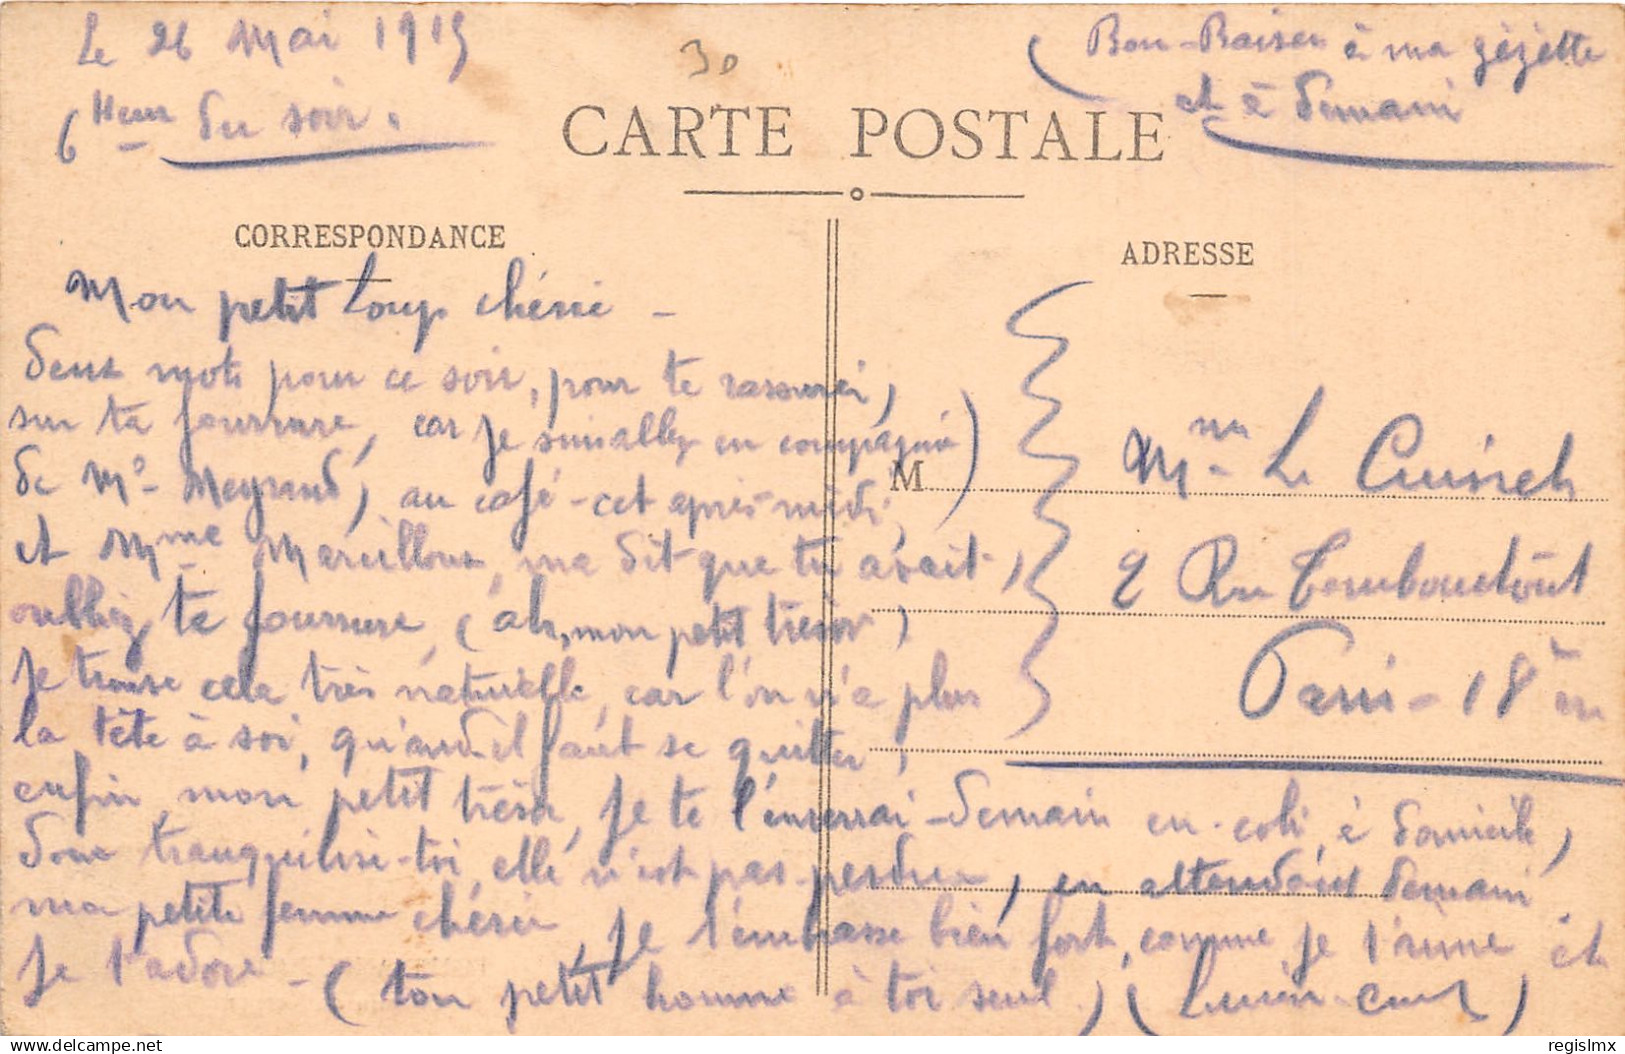 Le 26 Mai 1915
6 Heur du soir.
30
(Bon-Baiser à ma zézette
et à demain
CARTE POSTALE
CORRESPONDANCE
ADRESSE
Mon petit Loup chérie -
deux mots pour ce soir, pour te rassurer,
sur ta fourrure, car je suis allez en compagnie)
de Mr Meyrand, au café - cet après-midi,
et Mme Marcilloux, ma dit que tu avait,
oubliez ta fourrure, (ah, mon petit trésor)
Je trouve cela très naturelle, car l'on n'a plus
la tête à soi, quand il faut se quitter,
enfin, mon petit trésor, je te l'enverrai - demain en-coli à domicile,
donc tranquilise-toi, elle n'est pas perdue, en attendant demain
ma petite femme chérie, je t'embrasse bien fort, comme je t'aime et
je t'adore - (ton petit homme à toi seul.) (Lucien
M
Mme Le
2 Rue Tombouctout
Paris - 18 em
delcampe.net
regislmx